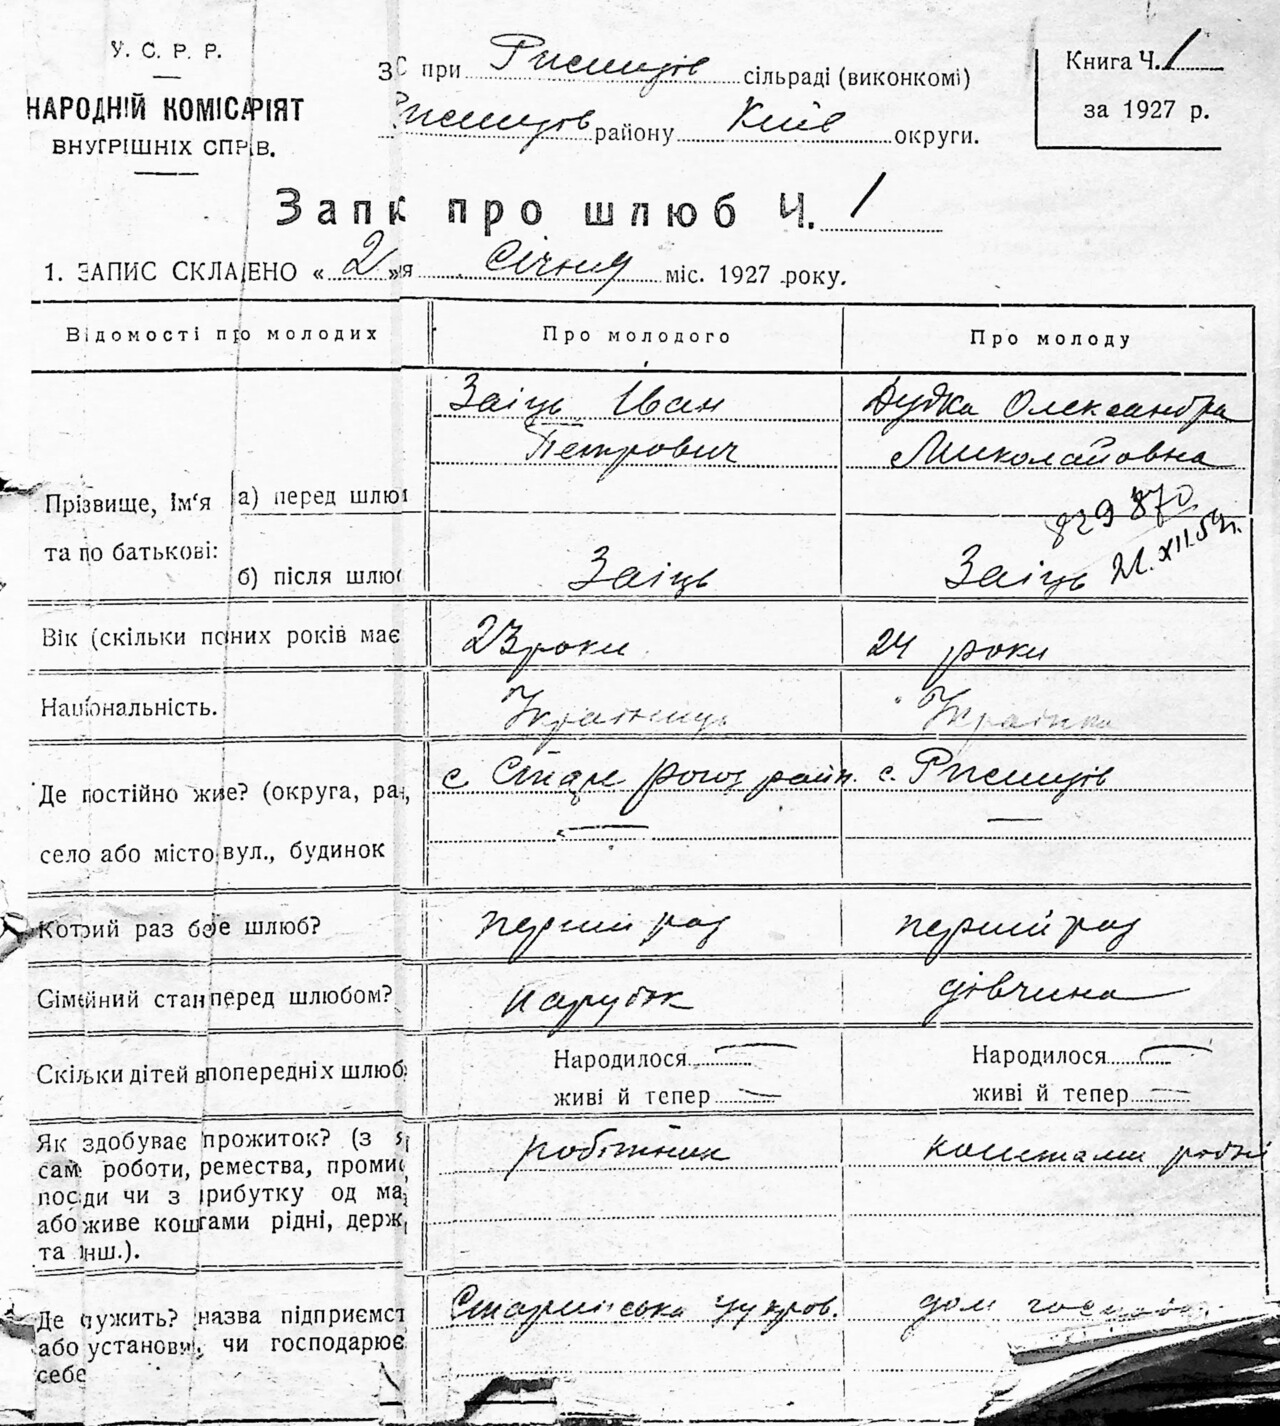 У. С. Р. Р.
НАРОДНІЙ КОМІСАРІЯТ
ВНУТРІШНІХ СПРІВ.
ЗС при Ржищів сільраді (виконкомі)
Ржищів району Київ округи.
Книга Ч. 1
за 1927 р.
Запис про шлюб Ч. 1
1. ЗАПИС СКЛАДЕНО « 2 »я Січня міс. 1927 року.
Відомості про молодих
Про молодого
Про молоду
Заіць Іван
Петрович
Дудка Олександра
Миколайовна
Прізвище, Ім'я
та по батькові:
а) перед шлю
б) після шлю
829 870
21.XII.59г.
Заіць
Заіць
Вік (скільки повних років має
23 роки
24 роки
Національність.
Українець
Українка
Де постійно живе? (округа, ра,
село або місто, вул., будинок
с Старе рогоз район.
с. Ржищів
Котрий раз бере шлюб?
перший раз
перший раз
Сімейний стан перед шлюбом?
парубок
дівчина
Скільки дітей в попередніх шлюб
Народилося
живі й тепер
Народилося
живі й тепер
Як здобуває прожиток? (з
сам роботи, ремества, проми
посади чи з прибутку од ма
або живе коштами рідні, держ,
та інш.).
робітник
коштами рідні
Де служить? назва підприємст
або установи, чи господарює
себе
Старинська цукров.
дом господ.